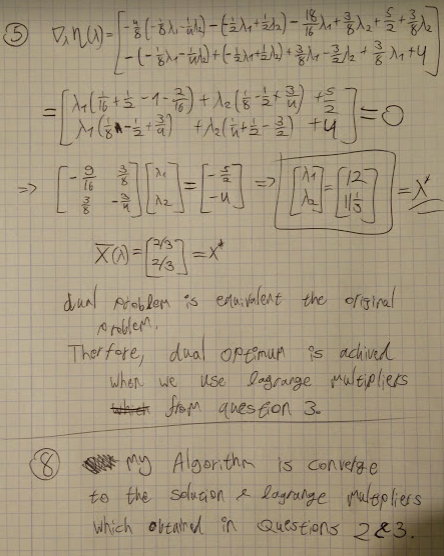 ⑤ ∇λη(λ) = [ -4/8(-1/8λ1-1/4λ2)-(1/2λ1+1/2λ2)-18/16λ1+3/8λ2+5/2+3/8λ2
-(-1/8λ1-1/4λ2)+(-1/2λ1+1/2λ2)+3/8λ1-3/2λ2+3/8λ1+4 ]
= [ λ1(1/16+1/2-1-2/16)+λ2(1/8-1/2+3/4)+5/2
λ1(1/8-1/2+3/4) +λ2(1/4+1/2-3/2) +4 ] = 0
=> [ -9/16 3/8
3/8 -3/4 ] [ λ1
λ2 ] = [ -5/2
-4 ] => [ λ1
λ2 ] = [ 12
11 1/3 ] = λ*
X̄(λ) = [ 2/3
2/3 ] = x*
dual problem is equivalent the original
problem.
Therfore, dual optimum is achived
when we use lagrange multipliers
from question 3.
⑧ my Algorithm is converge
to the solution & lagrange multepliers
which obtained in Questions 2&3.